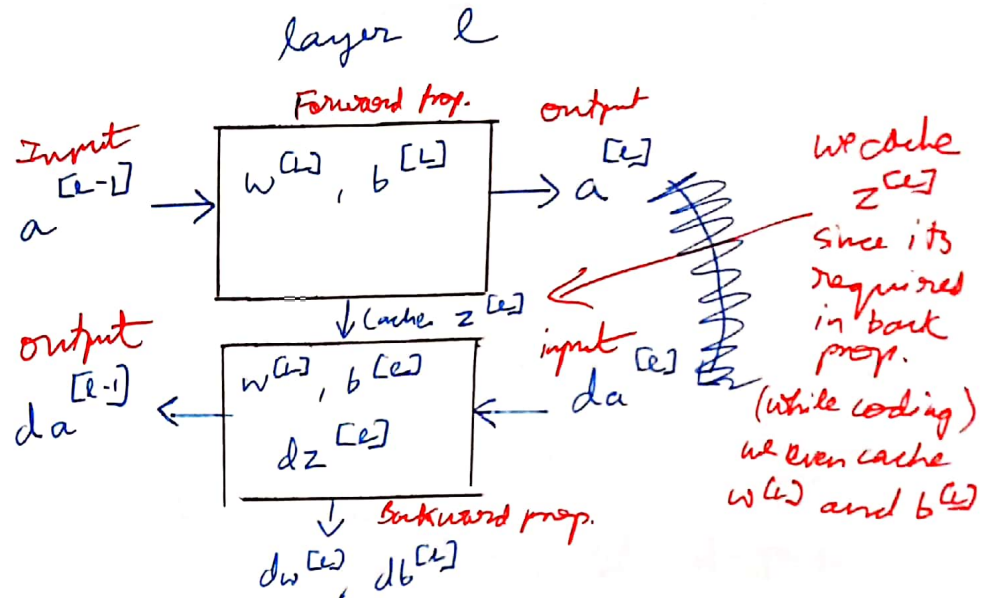 layer l
Forward prop.
Input
a^[l-1]
w^[l], b^[l]
output
a^[l]
we cache
z^[l]
since its
required
in back
prop.
(while coding)
we even cache
w^[l] and b^[l]
Cache z^[l]
output
da^[l-1]
w^[l], b^[l]
dz^[l]
input
da^[l]
Backward prop.
dw^[l], db^[l]